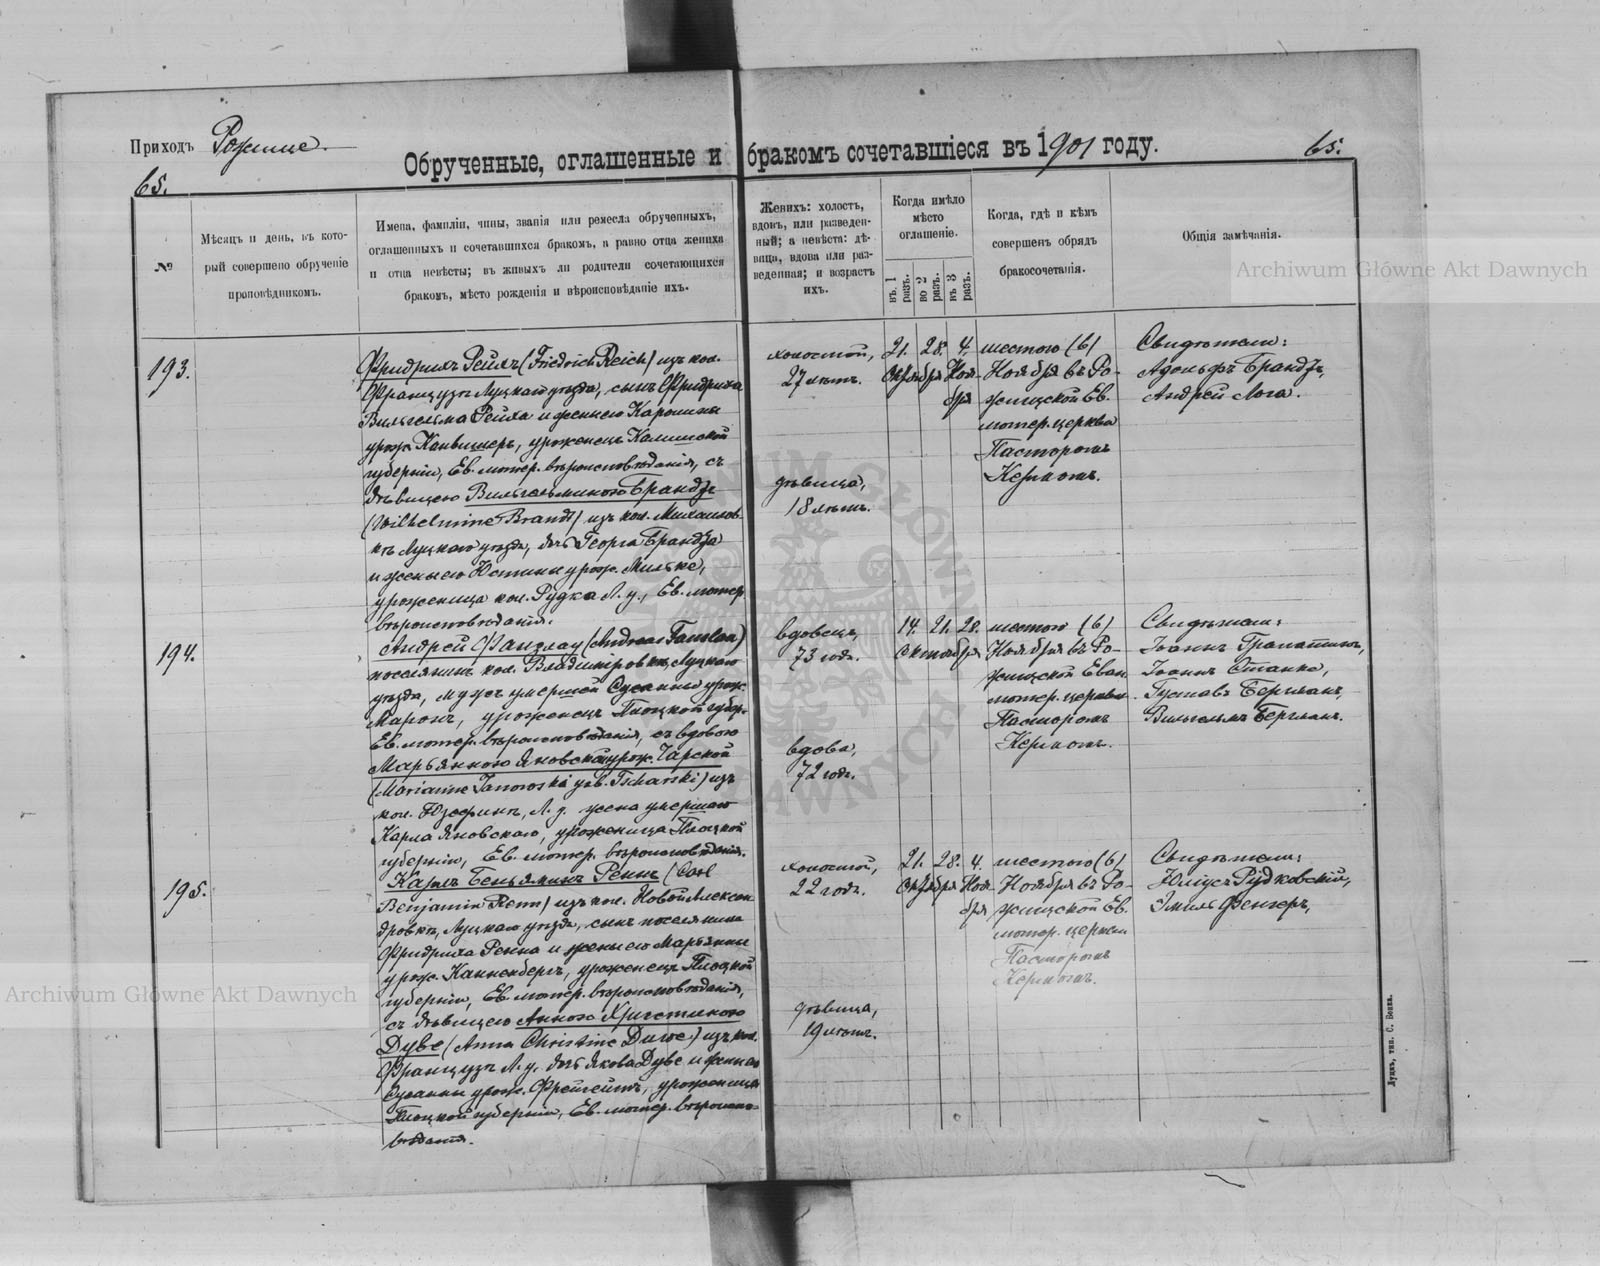 Приходъ Рожище.
Обрученные, оглашенные и бракомъ сочетавшіеся въ 1901 году.
65.
65.
№
Мѣсяцъ и день, въ кото-
рый совершено обрученіе
проповѣдникомъ.
Имена, фамиліи, чины, званія или ремесла обрученныхъ,
оглашенныхъ и сочетавшихся бракомъ, а равно отца жениха
и отца невѣсты; въ живыхъ ли родители сочетающихся
бракомъ, мѣсто рожденія и вѣроисповѣданіе ихъ.
Женихъ: холостъ,
вдовъ, или разведен-
ный; а невѣста: дѣ-
вица, вдова или раз-
веденная; и возрастъ
ихъ.
Когда имѣло
мѣсто
оглашеніе.
въ 1 разъ.
во 2 разъ.
въ 3 разъ.
Когда, гдѣ и кѣмъ
совершенъ обрядъ
бракосочетанія.
Общія замѣчанія.
193.
Фридрихъ Рейхъ (Friedrich Reich) изъ кол.
Французъ Луцкаго уѣзда, сынъ Фридриха
Вильгельма Рейха и жены его Каролины
урож. уроженецъ Калишской
губерніи, Ев. лютер. вѣроисповѣданія, съ
дѣвицею Вильгельминою Брандтъ
(Wilhelmine Brandt) изъ кол. Михайлов-
ка Луцкаго уѣзда, дочь Георга Брандта
и жены его Юстины урож. Мильке,
уроженица кол. Рудка Л. у., Ев. лютер.
вѣроисповѣданія.
холостой,
27 лѣтъ.
дѣвица,
18 лѣтъ.
21. 28. 4.
Октября Ноя-
бря
шестого (6)
Ноября въ Ро-
жищской Ев.
лютер. церкви
Пасторомъ
Керномъ.
Свидѣтели:
Адольфъ Брандтъ,
Андрей Лога.
194.
Андрей Фанзлау (Andreas Fanslau)
поселянинъ кол. Владимировка, Луцкаго
уѣзда, мужъ умершей Сусанны урож.
Марокъ, уроженецъ Плоцкой губер.
Ев. лютер. вѣроисповѣданія, съ вдовою
Марьянною Яновской урож. Чарской
(Marianne Janowski geb. Tscharski) изъ
кол. Юзефинъ, Л. у. жена умершаго
Карла Яновскаго, уроженица Плоцкой
губерніи, Ев. лютер. вѣроисповѣданія.
вдовецъ,
73 года.
вдова,
72 года.
14. 21. 28.
Октября
шестого (6)
Ноября въ Ро-
жищской Еван.
лютер. церкви
Пасторомъ
Керномъ.
Свидѣтели:
Іоаннъ
Іоаннъ Станке,
Густавъ Бергманъ,
Вильгельмъ Бергманъ.
195.
Карлъ Беньяминъ Реннъ (Carl
Benjamin Renn) изъ кол. Новой Алексан-
дровка, Луцкаго уѣзда, сынъ поселянина
Фридриха Ренна и жены его Марьянны
урож. Канненбергъ, уроженецъ Плоцкой
губерніи, Ев. лютер. вѣроисповѣданія,
съ дѣвицею Анною Христиною
Дуве (Anna Christine Duwe) изъ кол.
Французъ Л. у. дочь Якова Дуве и жены его
Сусанны урож. уроженица
Плоцкой губерніи, Ев. лютер. вѣроиспо-
вѣданія.
холостой,
22 года.
дѣвица,
19 лѣтъ.
21. 28. 4.
Октября Ноя-
бря
шестого (6)
Ноября въ Ро-
жищской Ев.
лютер. церкви
Пасторомъ
Керномъ.
Свидѣтели:
Юліусъ Рудковскій,
Эмиль Фенгеръ,
Луцкъ, тип. С. Бенка.
Archiwum Główne Akt Dawnych
Archiwum Główne Akt Dawnych